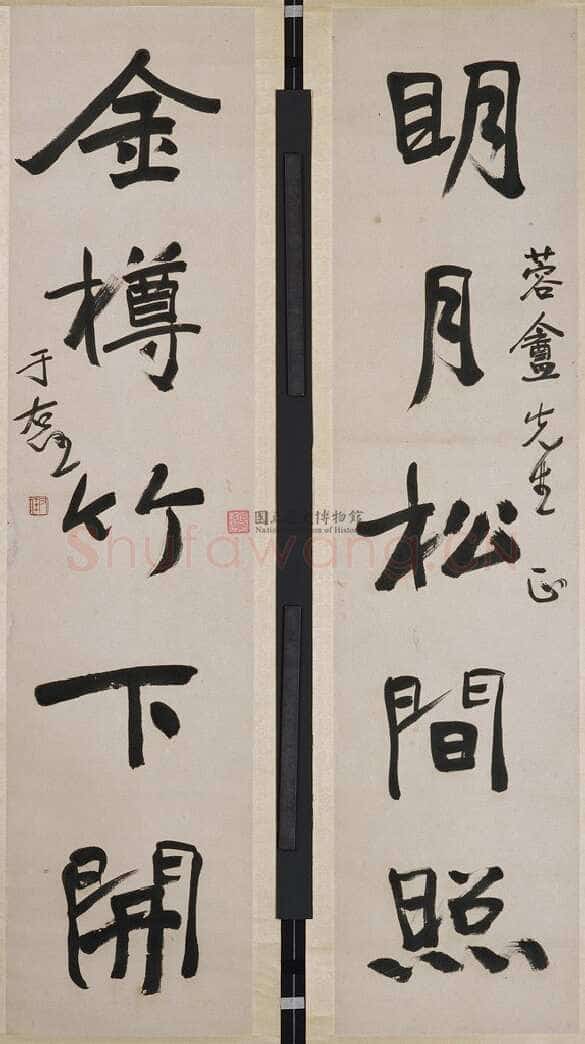 明月松間照
蓉盦先生 正
金樽竹下開
于右任
國立歷史博物館
National Museum of History
Shufawang.cn